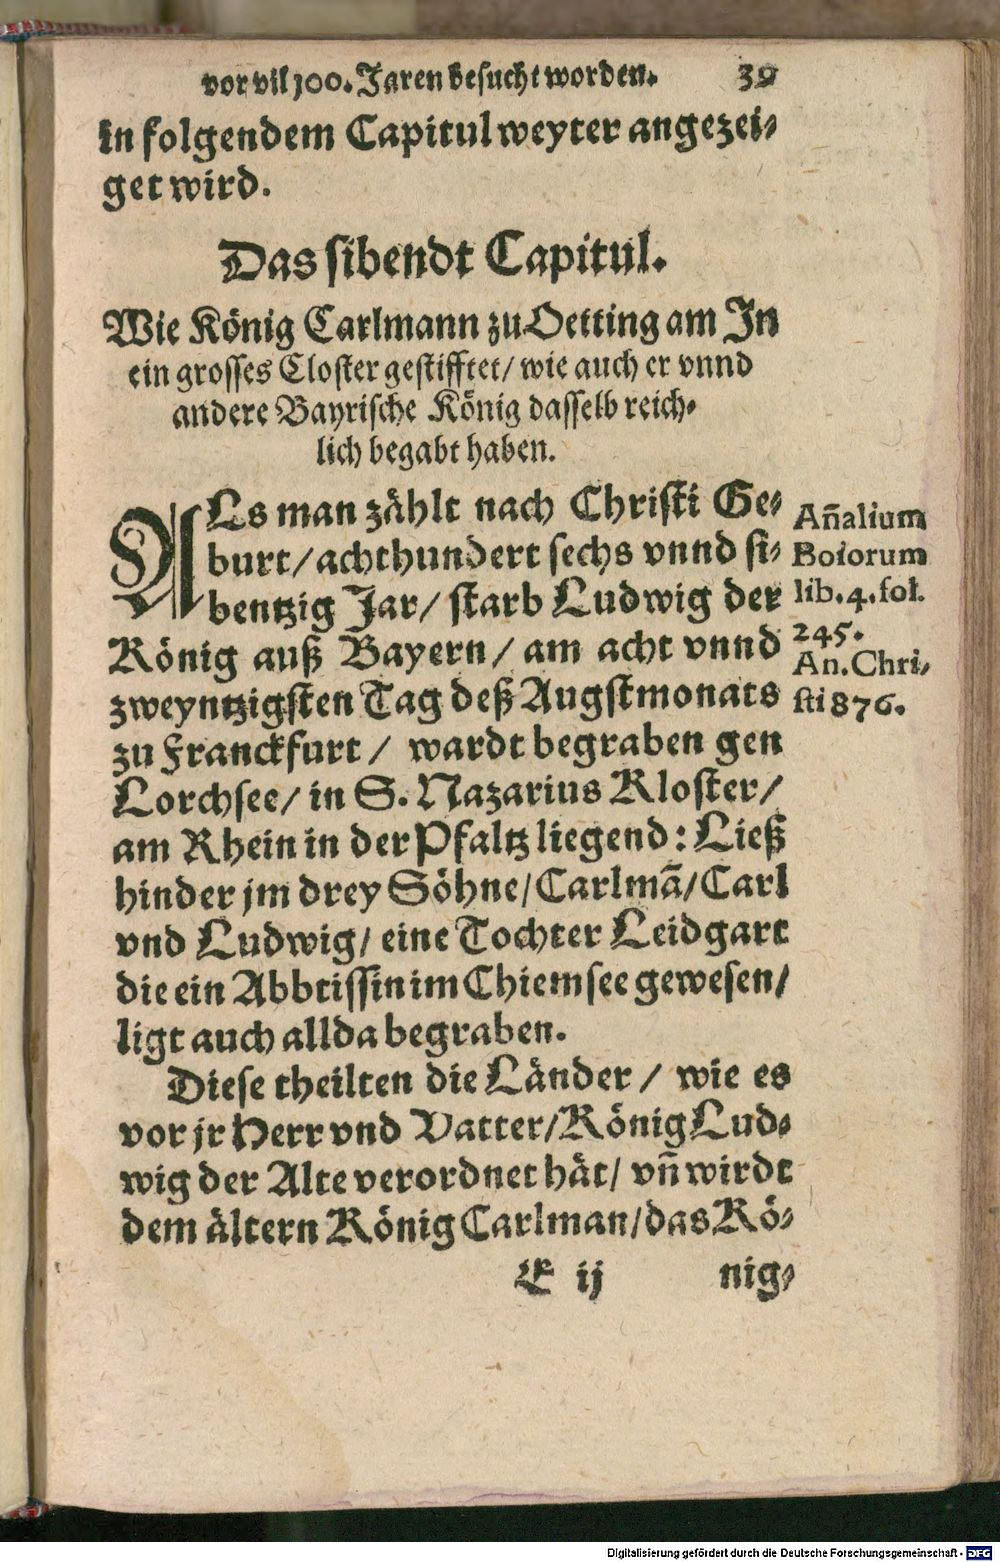 vor vil 100. Jaren besucht worden. 39
in folgendem Capitul weyter angezei-
get wird.
Das sibendt Capitul.
Wie König Carlmann zu Oetting am In
ein grosses Closter gestifftet/ wie auch er vnnd
andere Bayrische König dasselb reich-
lich begabt haben.
ALs man zählt nach Christi Ge-
burt/ achthundert sechs vnnd si-
bentzig Jar/ starb Ludwig der
König auß Bayern/ am acht vnnd
zweyntzigsten Tag deß Augstmonats
zu Franckfurt/ wardt begraben gen
Lorchsee/ in S. Nazarius Kloster/
am Rhein in der Pfaltz liegend: Ließ
hinder jm drey Söhne/ Carlmã/ Carl
vnd Ludwig/ eine Tochter Leidgart
die ein Abbtissin im Chiemsee gewesen/
ligt auch allda begraben.
Diese theilten die Länder/ wie es
vor jr Herr vnd Vatter/ König Lud-
wig der Alte verordnet hät/ vñ wirdt
dem ältern König Carlman/ das Kö-
E ij nig-
Añalium
Boiorum
lib. 4. fol.
245.
An. Chri-
sti 876.
Digitalisierung gefördert durch die Deutsche Forschungsgemeinschaft - DFG